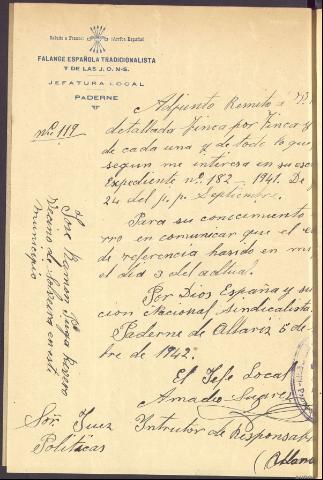 Saludo a Franco: ¡Arriba España!
FALANGE ESPAÑOLA TRADICIONALISTA
Y DE LAS J. O. N-S.
JEFATURA LOCAL
PADERNE
nº 119
Adjunto Remito á
detallada Finca por Finca y
de cada una y de todo lo que
segun me interesa en su esc
Expediente nº 182 - 1941. De
24 del p.p. Septiembre.
Para su conocimiento
rro en comunicar que el e
de referencia habido en mi
el dia 3 del actual.
Por Dios España y su
cion Nacional Sindicalista
Paderne de Allariz 5 de
bre de 1942.
El Jefe Local
Amadio
Jose Ramon Puga
Vecino de Sobreira en este
municipio
Sor. Juez Intrutor de Responsabi
Politicas
(Allari